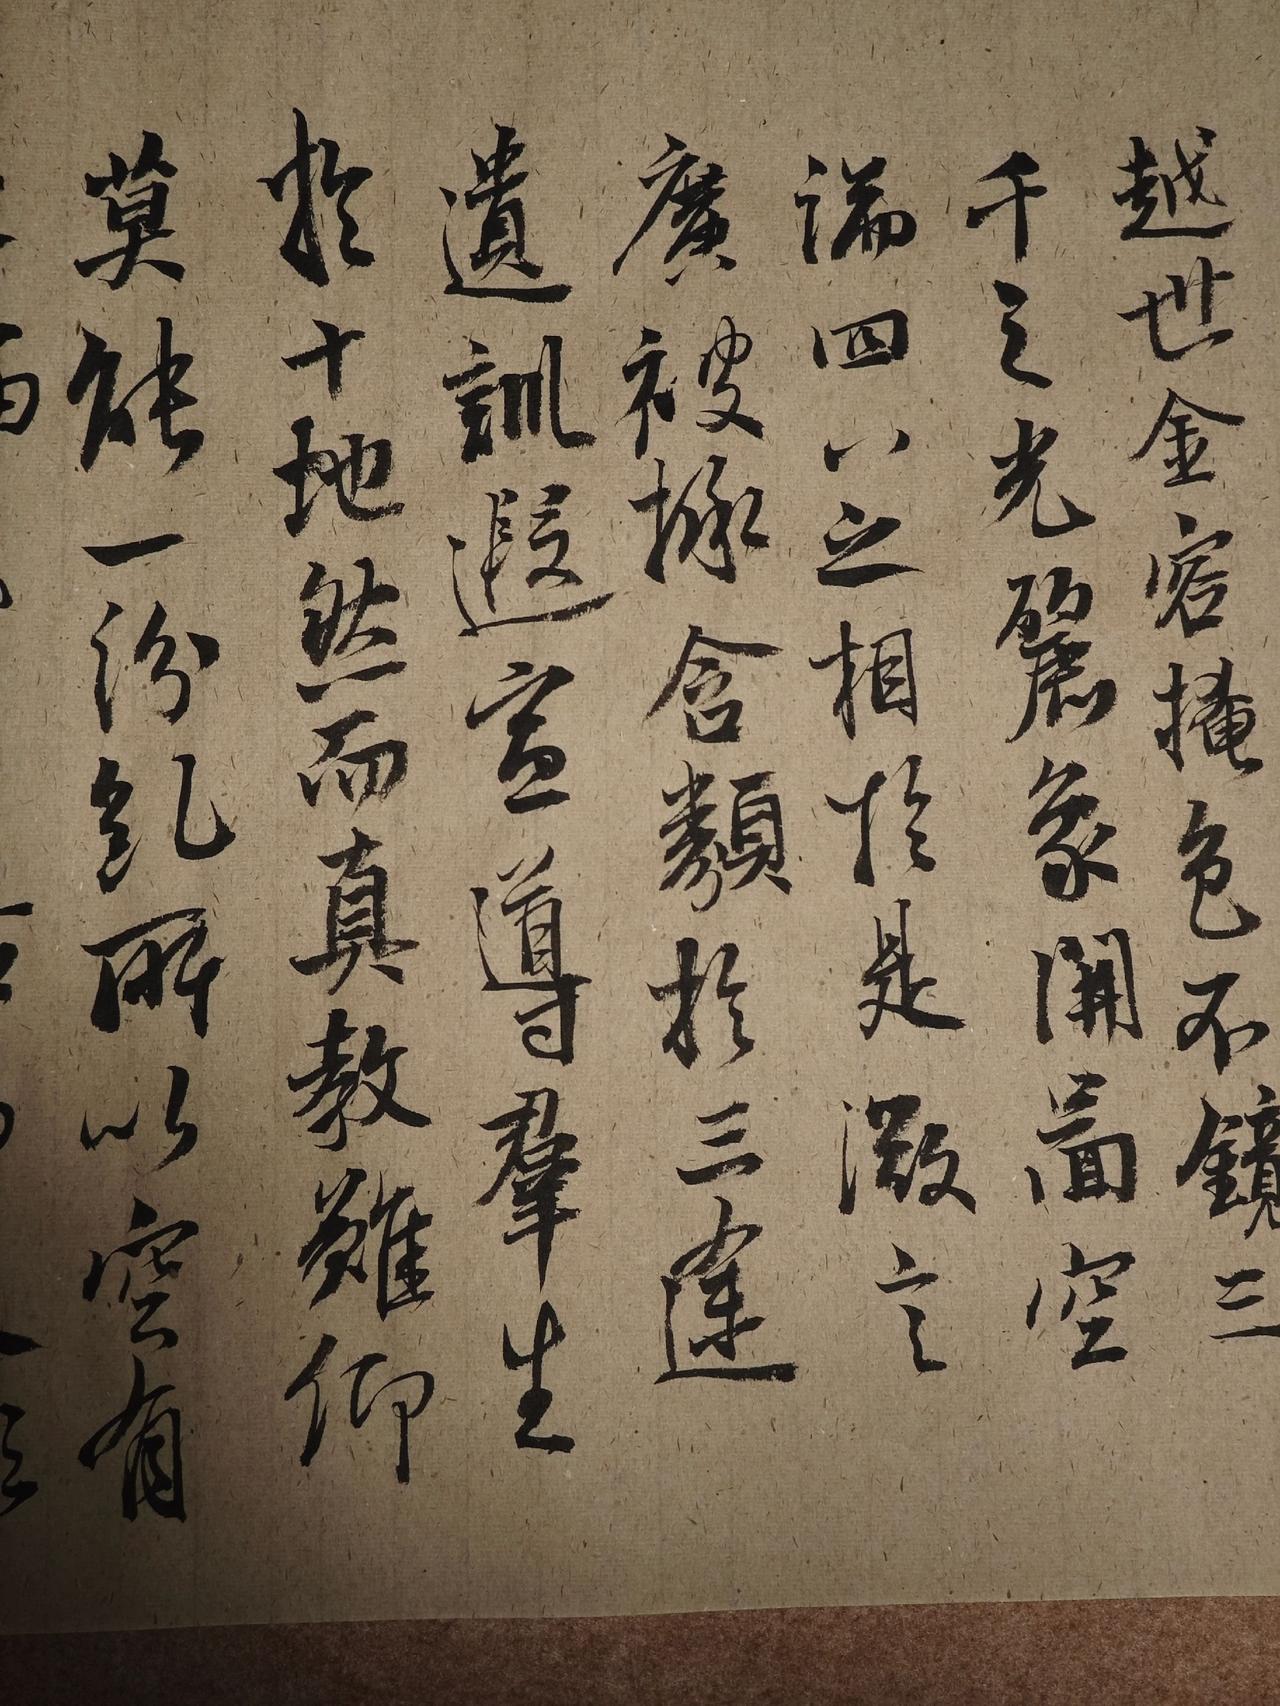 越世金容掩色不鏡三
千之光麗象開圖空
端四八之相於是微言
廣被拯含類於三途
遺訓遐宣導羣生
於十地然而真教難仰
莫能一紛糺所以空有